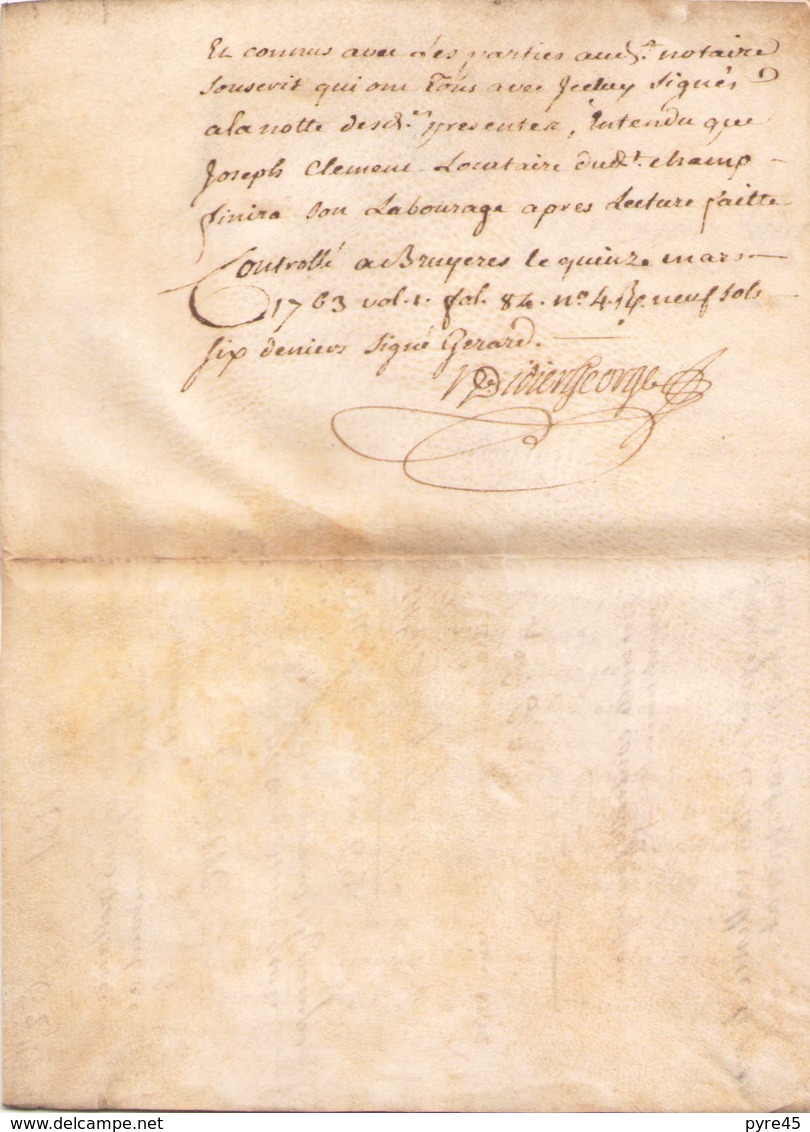 Et connus avec les parties aud.t notaire
souscrit qui ont tous avec Jceluy signés
a la notte desd.tes presentes, Entendu que
Joseph Clement Locataire dud.t champ -
finira son Labourage apres Lecture faitte
Controllé a Bruyeres le quinze mars
1763 vol. 1. fol. 84. n.o 4. R. neuf sols
six deniers signé Gerard.
NDidierGeorge
© Delcampe.net
pyre45